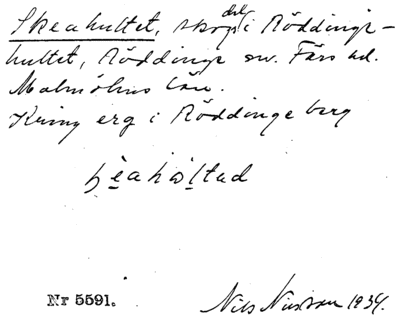 Skeahultet, skogsdel i Röddinge-
hultet, Röddinge sn. Färs hd.
Malmöhus län.
Kring erg i Röddinge berg
ꞕeahɷltad
Nr 5591.
Nils Nilsson 1934.